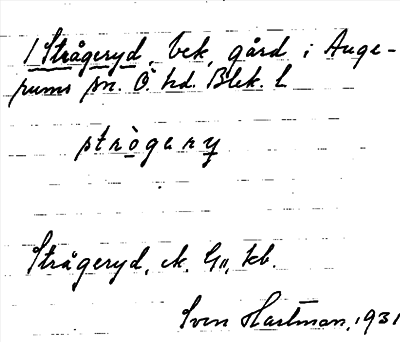 1 Strågeryd, bek. gård i Auge-
rums sn. Ö. hd. Blek. l
strògary
Strågeryd, ek. G11, kb.
Sven Hartman, 1931